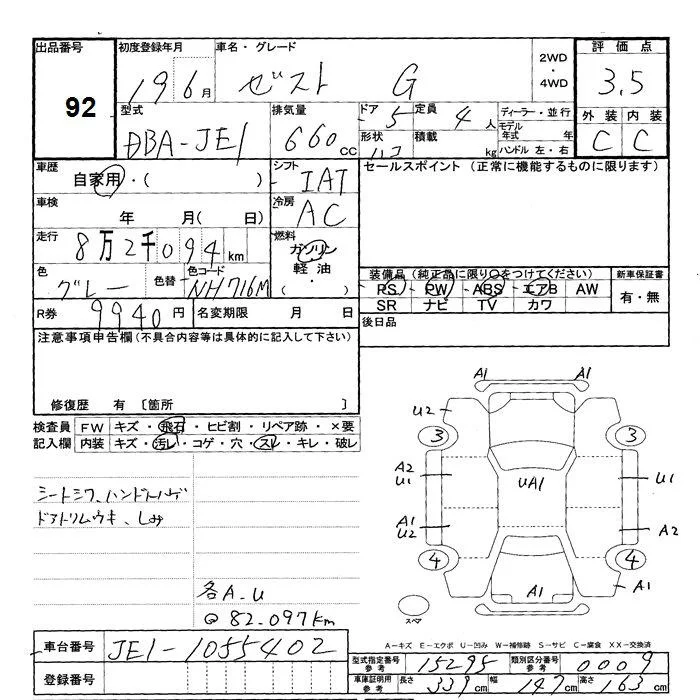 出品番号 92
初度登録年月 19 6月
車名・グレード ゼスト G
2WD・4WD
評価点 3.5
型式 DBA-JE1
排気量 660cc
ドア 5 定員 4人
形状 ハコ 積載 kg
ディーラー・並行
モデル年式 年
ハンドル 左・右
外装 内装
C C
車歴 自家用・( )
シフト IAT
セールスポイント (正常に機能するものに限ります)
車検 年 月( 日)
冷房 AC
走行 8万2千094km
燃料 ガソリン
軽油
( ・ )
色 グレー 色替 色コード NH716M
装備品(純正品に限り○をつけてください) 新車保証書
PS PW ABS エアB AW 有・無
SR ナビ TV カワ
R券 9940円 名変期限 月 日
後日品
注意事項申告欄(不具合内容等は具体的に記入して下さい)
修復歴 有 〔箇所 〕
検査員 FW キズ・飛石・ヒビ割・リペア跡・×要
記入欄 内装 キズ・汚レ・コゲ・穴・スレ・キレ・破レ
シートシワ、ハンドルハゲ
ドアトリムウキ、しみ
各A.U
@ 82.097km
A1 A1
U2
3 3
A2
U1 UA1 U1
A1
U2 A2
4 4
A1 A1
スペア
A-キズ E-エクボ U-凹み W-補修跡 S-サビ C-腐食 XX-交換済
車台番号 JE1-1055402
型式指定番号 参考 15295 類別区分番号 参考 0009
登録番号
車庫証明用 参考 長さ 339cm 幅 147cm 高さ 163cm